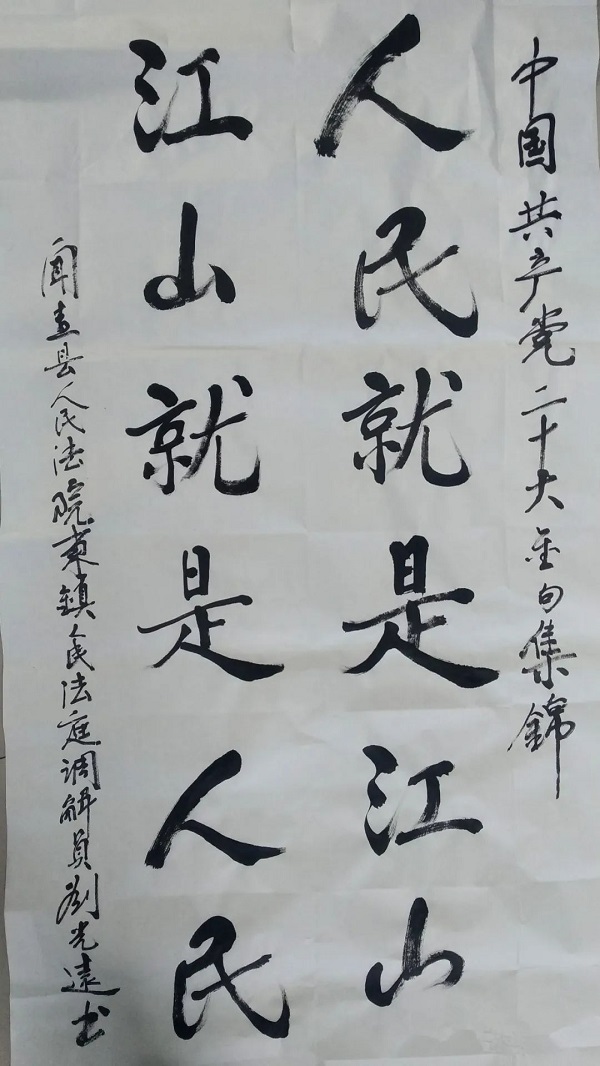 中国共产党二十大金句集錦
人民就是江山
江山就是人民
闻喜县人民法院東鎮人民法庭调解員劉光遠书